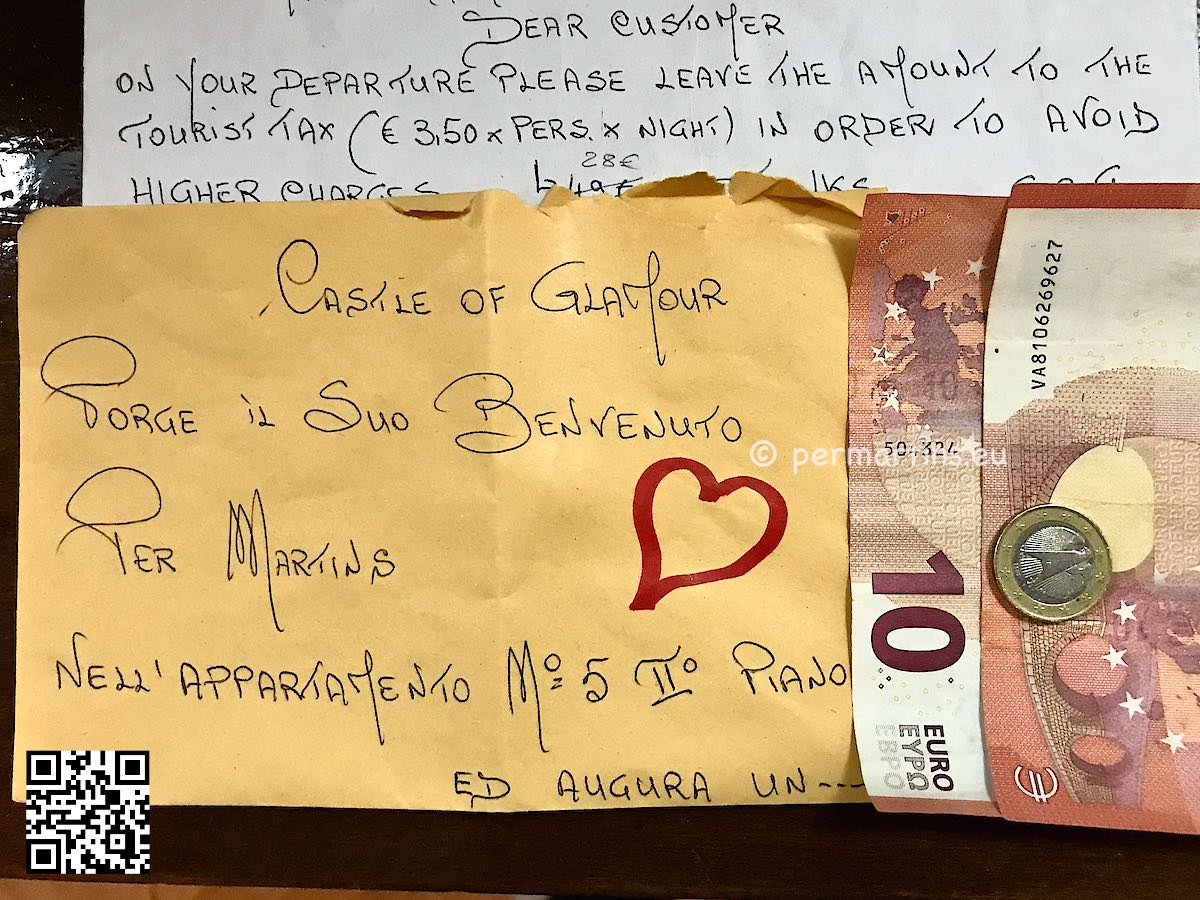 DEAR CUSTOMER
ON YOUR DEPARTURE PLEASE LEAVE THE AMOUNT TO THE
TOURIST TAX (€ 3,50 x PERS. x NIGHT) IN ORDER TO AVOID
28€
HIGHER CHARGES
CASTLE OF GLAMOUR
PORGE IL SUO BENVENUTO
PER MARTINS
NELL'APPARTAMENTO Nº 5 IIº PIANO
ED AUGURA UN---
© permartins.eu
504324
10
EURO
ΕΥΡΩ
ЕВРО
VA8106269627